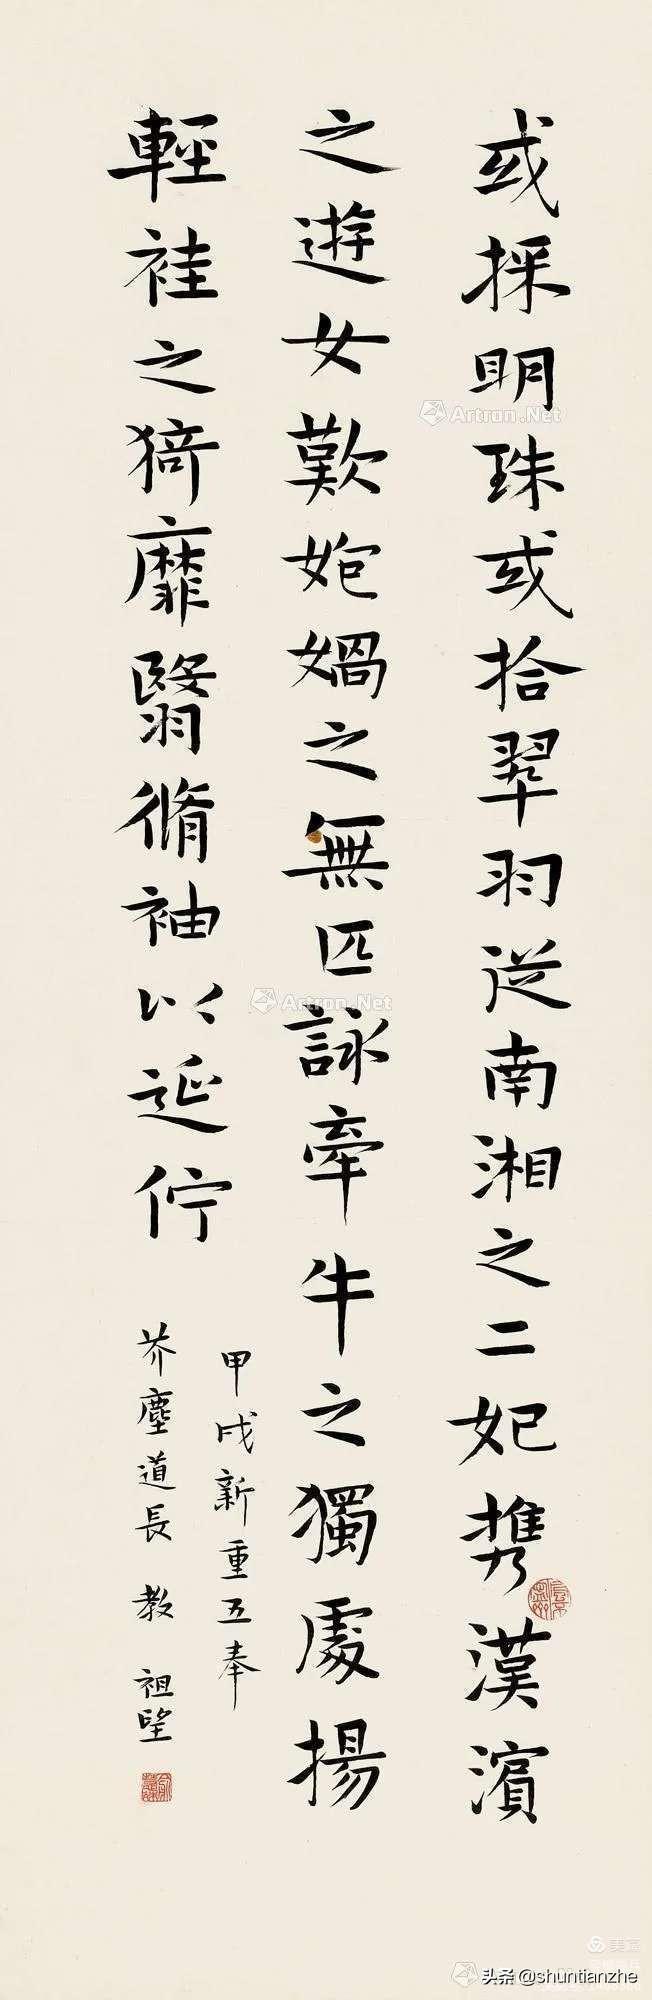 或採明珠或拾翠羽從南湘之二妃携漢濱
之遊女歎姤媧之無匹詠牽牛之獨處揚
輕袿之猗靡翳脩袖以延佇
甲戌新重五奉
芥塵道長 教 祖望
Artron.Net
Artron.Net
头条@shuntianzhe